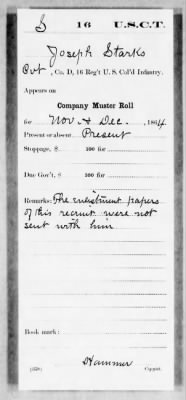 S 16 U.S.C.T.
Joseph Starks
Pvt, Co. D, 16 Reg't U. S. Col'd Infantry.
Appears on
Company Muster Roll
for Nov & Dec, 1864.
Present or absent Present
Stoppage, $ 100 for
Due Gov't, $ 100 for
Remarks: The enlistment papers
of this recruit were not
sent with him
Book mark:
Hammer
(358) Copyist.